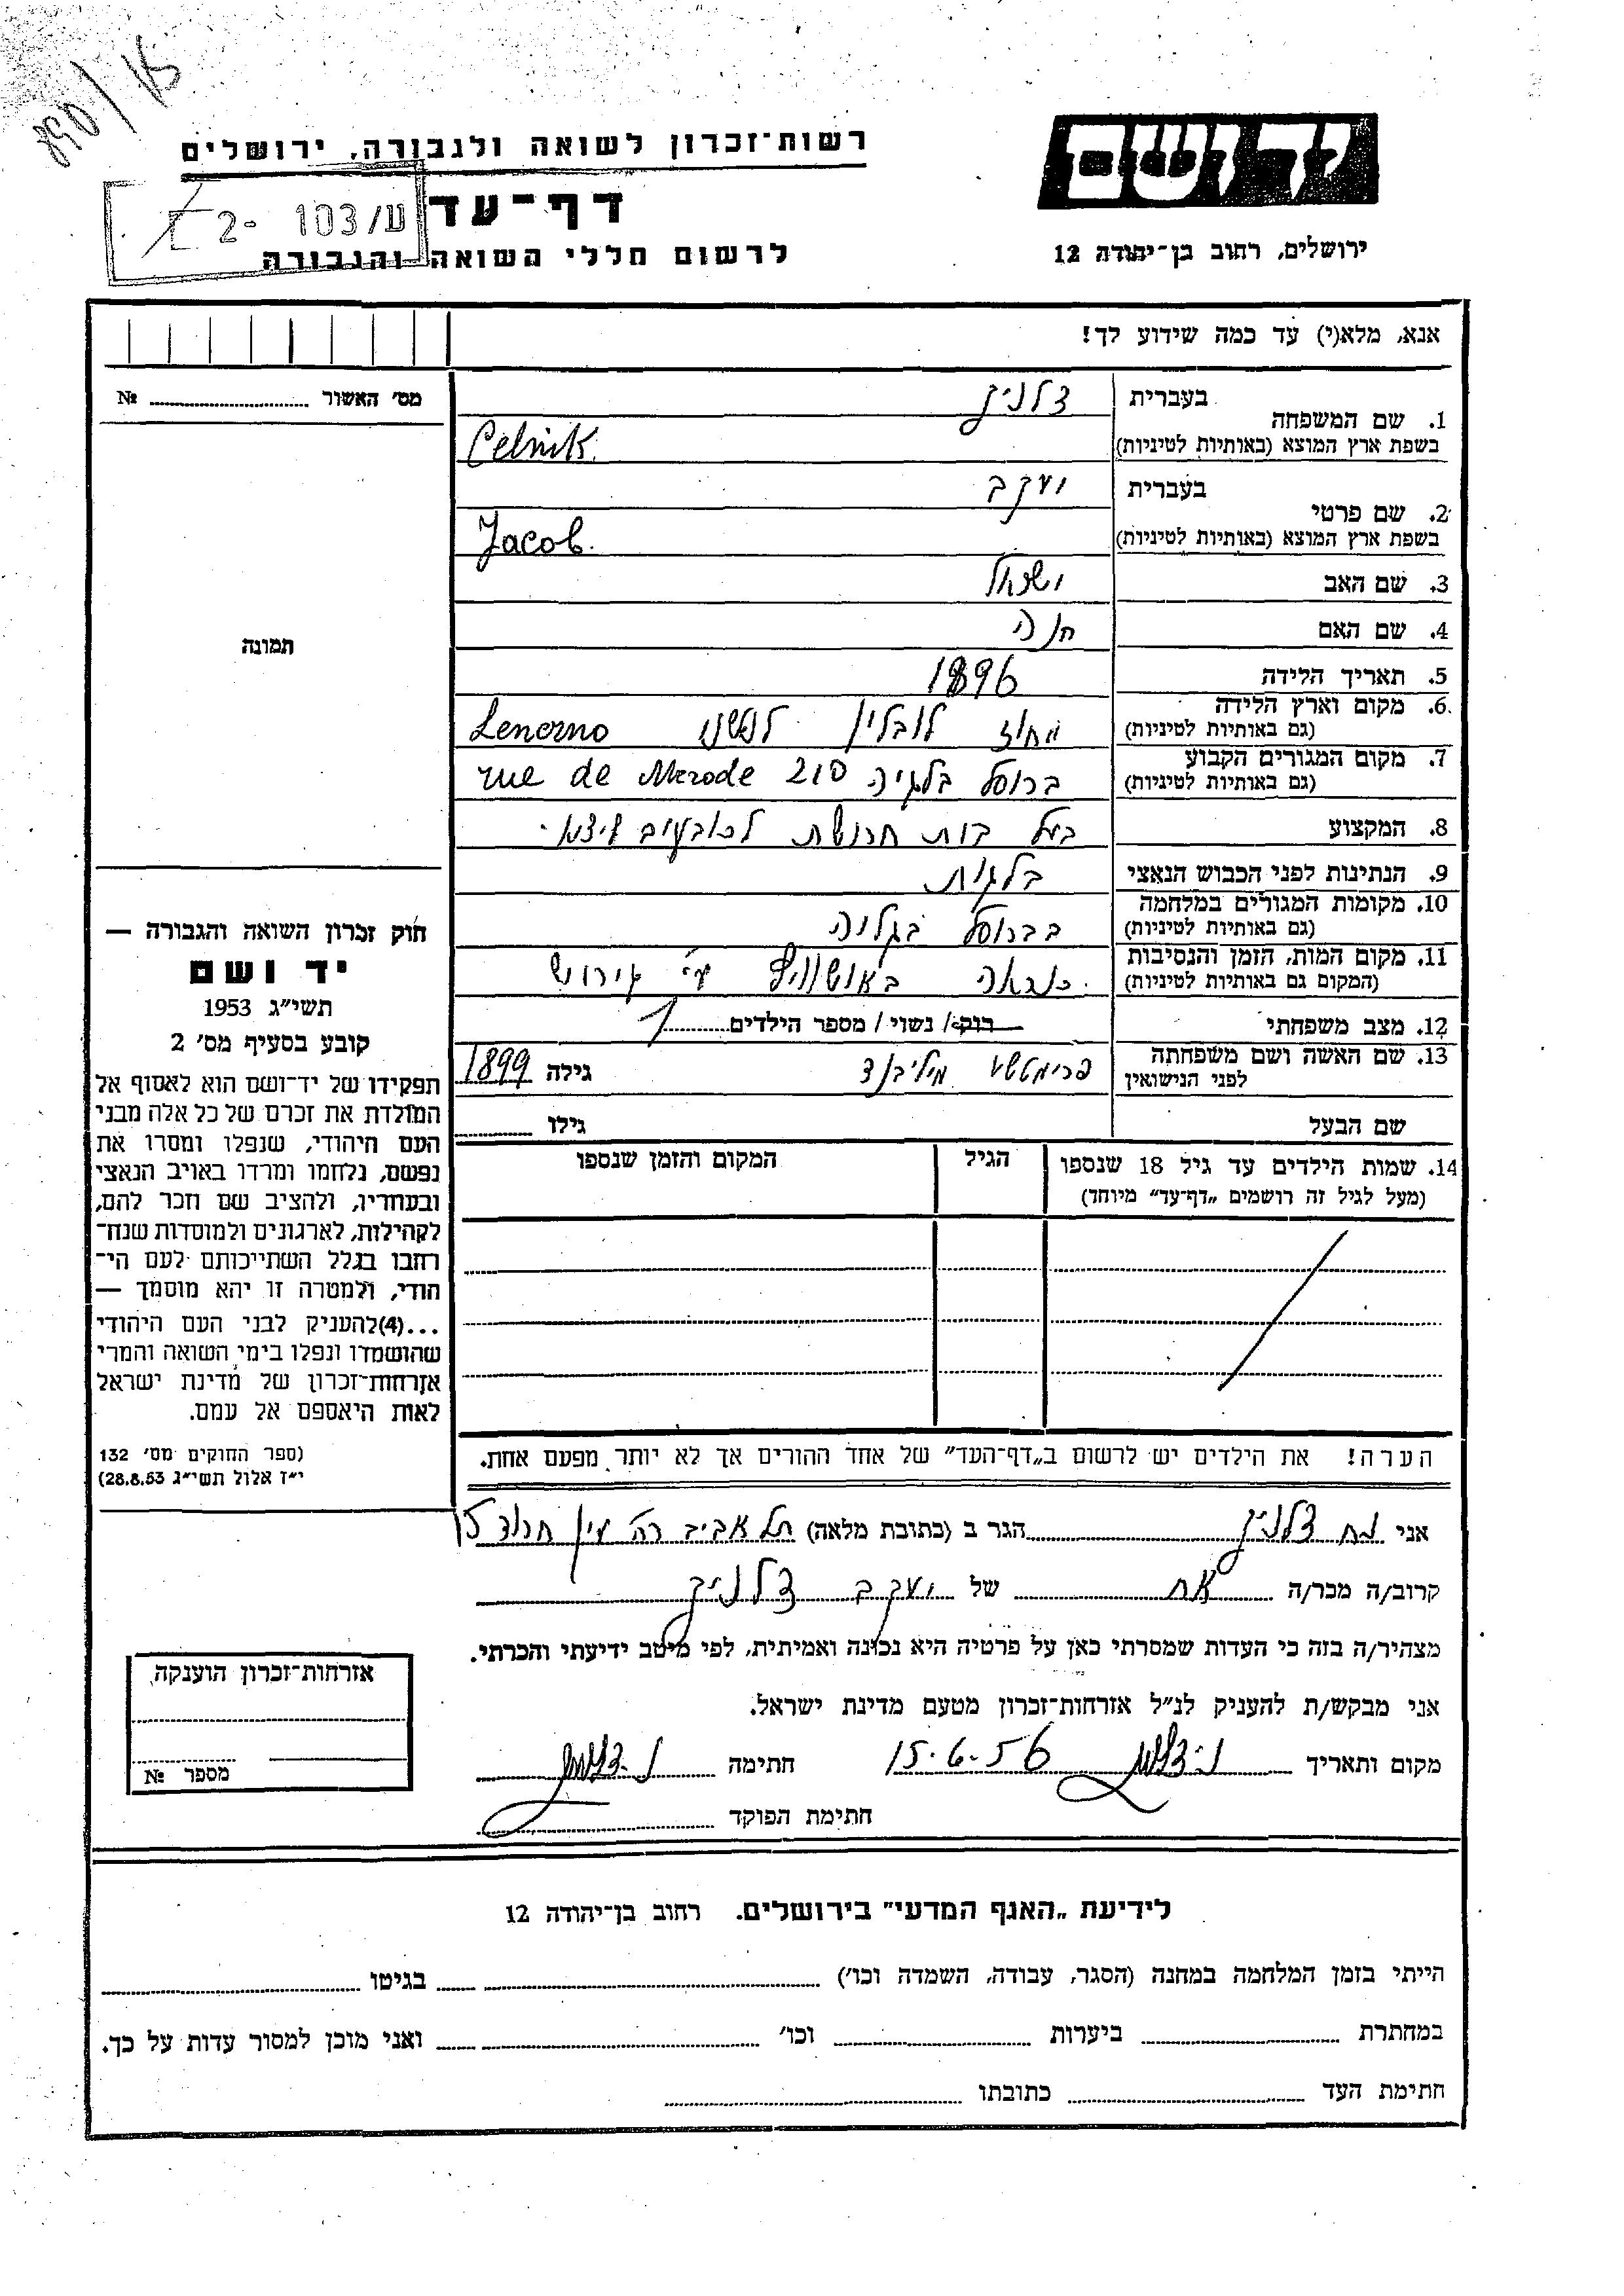 890/15
רשות־זכרון לשואה ולגבורה, ירושלים
יד ושם
דף־עד
ע/103 -2
לרשום חללי השואה והגבורה
ירושלים, רחוב בן־יהודה 12
אנא, מלא(י) עד כמה שידוע לך!
מס׳ האשור № 
1. שם המשפחה בעברית צלניק
בשפת ארץ המוצא (באותיות לטיניות) Celnik
2. שם פרטי בעברית יעקב
בשפת ארץ המוצא (באותיות לטיניות) Jacob.
3. שם האב ישראל
4. שם האם חנה
5. תאריך הלידה 1896
6. מקום וארץ הלידה (גם באותיות לטיניות) מחוז לובלין Lenczno
7. מקום המגורים הקבוע (גם באותיות לטיניות) ברוסל בלגיה rue de Merode 210
8. המקצוע בעל בית חרושת לכובעים
9. הנתינות לפני הכבוש הנאצי בלגית
10. מקומות המגורים במלחמה (גם באותיות לטיניות) בברוסל בגליה
11. מקום המות, הזמן והנסיבות (המקום גם באותיות לטיניות) כנראה באושוויץ ע״י גירוש
12. מצב משפחתי רווק/ נשוי/ מספר הילדים 1
13. שם האשה ושם משפחתה לפני הנישואין מילבנד גילה 1899
שם הבעל גילו
14. שמות הילדים עד גיל 18 שנספו (מעל לגיל זה רושמים „דף־עד״ מיוחד) הגיל המקום והזמן שנספו
הערה! את הילדים יש לרשום ב„דף־העד״ של אחד ההורים אך לא יותר מפעם אחת.
תמונה
חוק זכרון השואה והגבורה —
יד ושם
תשי״ג 1953
קובע בסעיף מס׳ 2
תפקידו של יד־ושם הוא לאסוף אל
המולדת את זכרם של כל אלה מבני
העם היהודי, שנפלו ומסרו את
נפשם, נלחמו ומרדו באויב הנאצי
ובעוזריו, ולהציב שם וזכר להם,
לקהילות, לארגונים ולמוסדות שנח־
רבו בגלל השתייכותם לעם הי־
הודי, ולמטרה זו יהא מוסמך —
...(4)להעניק לבני העם היהודי
שהושמדו ונפלו בימי השואה והמרי
אזרחות־זכרון של מדינת ישראל
לאות היאספם אל עמם.
(ספר החוקים מס׳ 132
י״ז אלול תשי״ג 28.8.53)
אני נח צלניק הגר ב (כתובת מלאה) תל אביב רח׳ עין חרוד 15
קרוב/ה מכר/ה אח של יעקב צלניק
מצהיר/ה בזה כי העדות שמסרתי כאן על פרטיה היא נכונה ואמיתית, לפי מיטב ידיעתי והכרתי.
אני מבקש/ת להעניק לנ״ל אזרחות־זכרון מטעם מדינת ישראל.
מקום ותאריך נ. צלניק 15.6.56 חתימה נ. צלניק
חתימת הפוקד
אזרחות־זכרון הוענקה,
מספר №
לידיעת „האגף המדעי״ בירושלים. רחוב בן־יהודה 12
הייתי בזמן המלחמה במחנה (הסגר, עבודה, השמדה וכו׳) בגיטו
במחתרת ביערות וכו׳ ואני מוכן למסור עדות על כך.
חתימת העד כתובתו